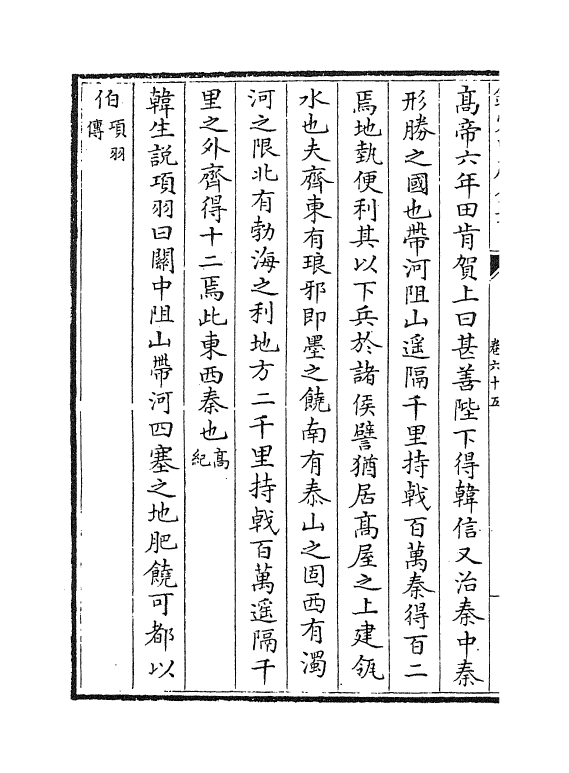 卷六十五
高帝六年田肯賀上曰甚善陛下得韓信又治秦中秦
形勝之國也帶河阻山遥隔千里持㦸百萬秦得百二
焉地埶便利其以下兵於諸侯譬猶居高屋之上建瓴
水也夫齊東有琅邪即墨之饒南有泰山之固西有濁
河之限北有勃海之利地方二千里持㦸百萬遥隔千
里之外齊得十二焉此東西秦也高紀
韓生説項羽曰關中阻山帶河四塞之地肥饒可都以
伯項羽傳